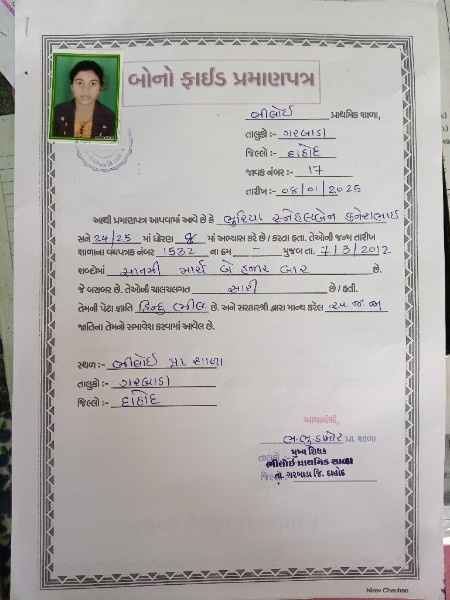 બોનો ફાઈડ પ્રમાણપત્ર
ભીલોઈ પ્રાથમિક શાળા,
તાલુકો :- ગરબાડા
જિલ્લો :- દાહોદ
જાવક નંબર :- 17
તારીખ :- 08/01/2025
આથી પ્રમાણપત્ર આપવામાં આવે છે કે ભુરિયા સ્નેહલબેન
સને 24/25 માં ધોરણ માં અભ્યાસ કરે છે / કરતા હતા. તેઓની જન્મ તારીખ
શાળાના વયપત્રક નંબર 1532 ના ક્રમ - મુજબ તા. 7/3/2012
શબ્દોમાં સાતમી માર્ચ બે હજાર બાર છે.
જે બરાબર છે. તેઓની ચાલચલગત સારી છે / હતી.
તેમની પેટા જ્ઞાતિ હિન્દુ ભીલ છે. અને સરકારશ્રી દ્વારા માન્ય કરેલ અ. જ. જા
જાતિના તેમનો સમાવેશ કરવામાં આવેલ છે.
સ્થળ :- ભીલોઈ પ્રા શાળા
તાલુકો :- ગરબાડા
જિલ્લો :- દાહોદ
આચાર્યશ્રી,
પ્રા. શાળા
તાલુકો
મુખ્ય શિક્ષક
ભીલોઈ પ્રાથમિક શાળા
તા. ગરબાડા જિ. દાહોદ
Nisav Chauhan